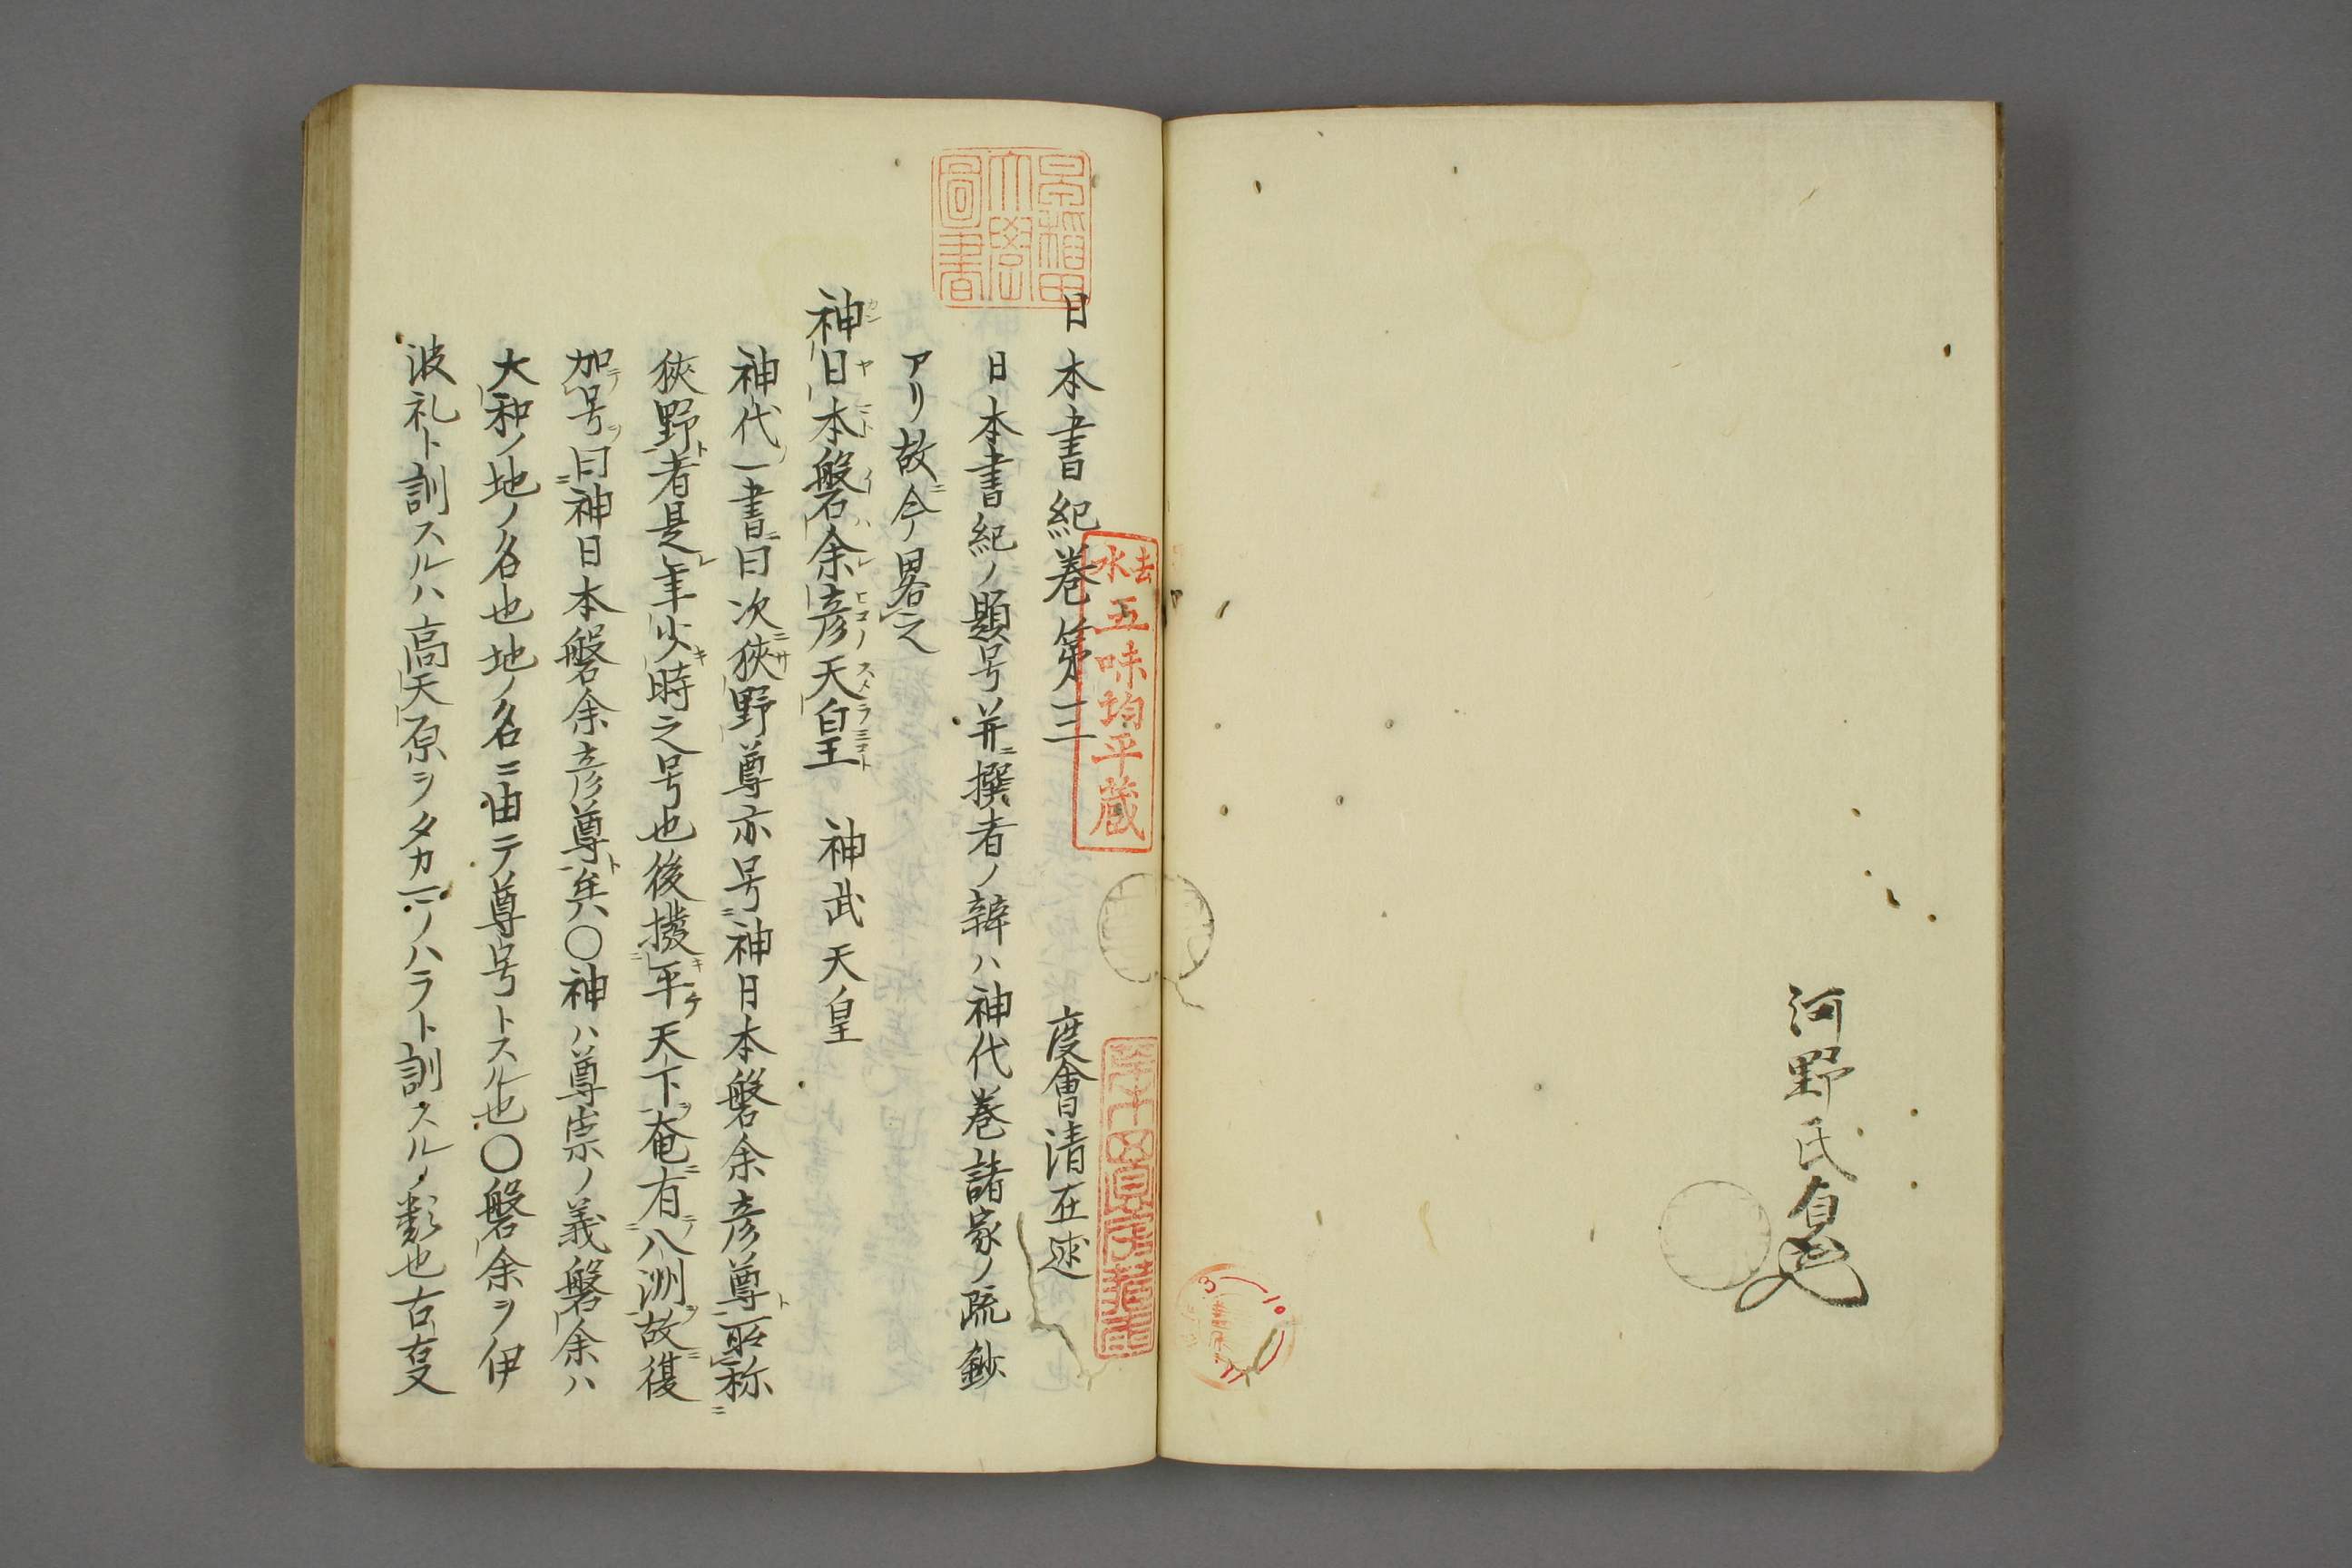 河野氏
早稲田大學圖書
五味均平蔵
日本書紀巻第三　度會清在述
日本書紀ノ題号并ニ撰者ノ辨ハ神代巻諸家ノ疏鈔
アリ故ニ今ノ畧之
神日本磐余彦天皇　神武天皇
カン ヤマト イハレ ヒコノ スメラミコト
神代ノ一書ニ曰次ニ狭野尊亦号ニ神日本磐余彦尊ト所称ニ
狭野ト者是レ年少キ時之号也後ニ撥キ平ケテ天下ヲ奄ニ有テ八洲ヲ故ニ復
加テ号ヲ曰ニ神日本磐余彦尊ト矣〇神ハ尊崇ノ義磐余ハ
大和ノ地ノ名也地ノ名ニ由テ尊号トスル也〇磐余ヲ伊
波礼ト訓スルハ高天原ヲタカマノハラト訓スルノ類也古夏